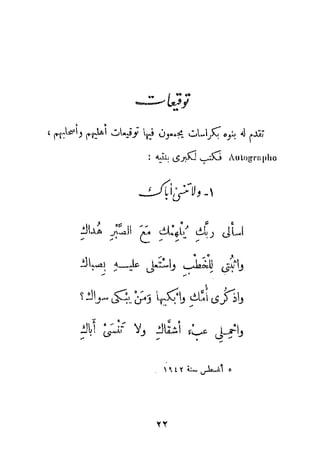 توقيعات
تقدم له بنوه بكراسات يجمعون فيها توقيعات أهليهم وأصحابهم ،
Autographe فكتب لكبرى بنتيه :
١- ولا تنسى أباك
اسألى ربَّكِ يُلهِمْكِ مَعَ الصَّبْرِ هُداكِ
واثبُتى لِلْخَطْبِ واستَعلى عليــهِ بِصباكِ
واذكُرى أُمَّكِ وابكيها وَمَنْ يَبْكى سواكِ؟
واحمِلى عبءَ أشقّاكِ ولا تَنْسَىْ أباكِ
٥ أغسطس سنة ١٩٤٢
٢٢